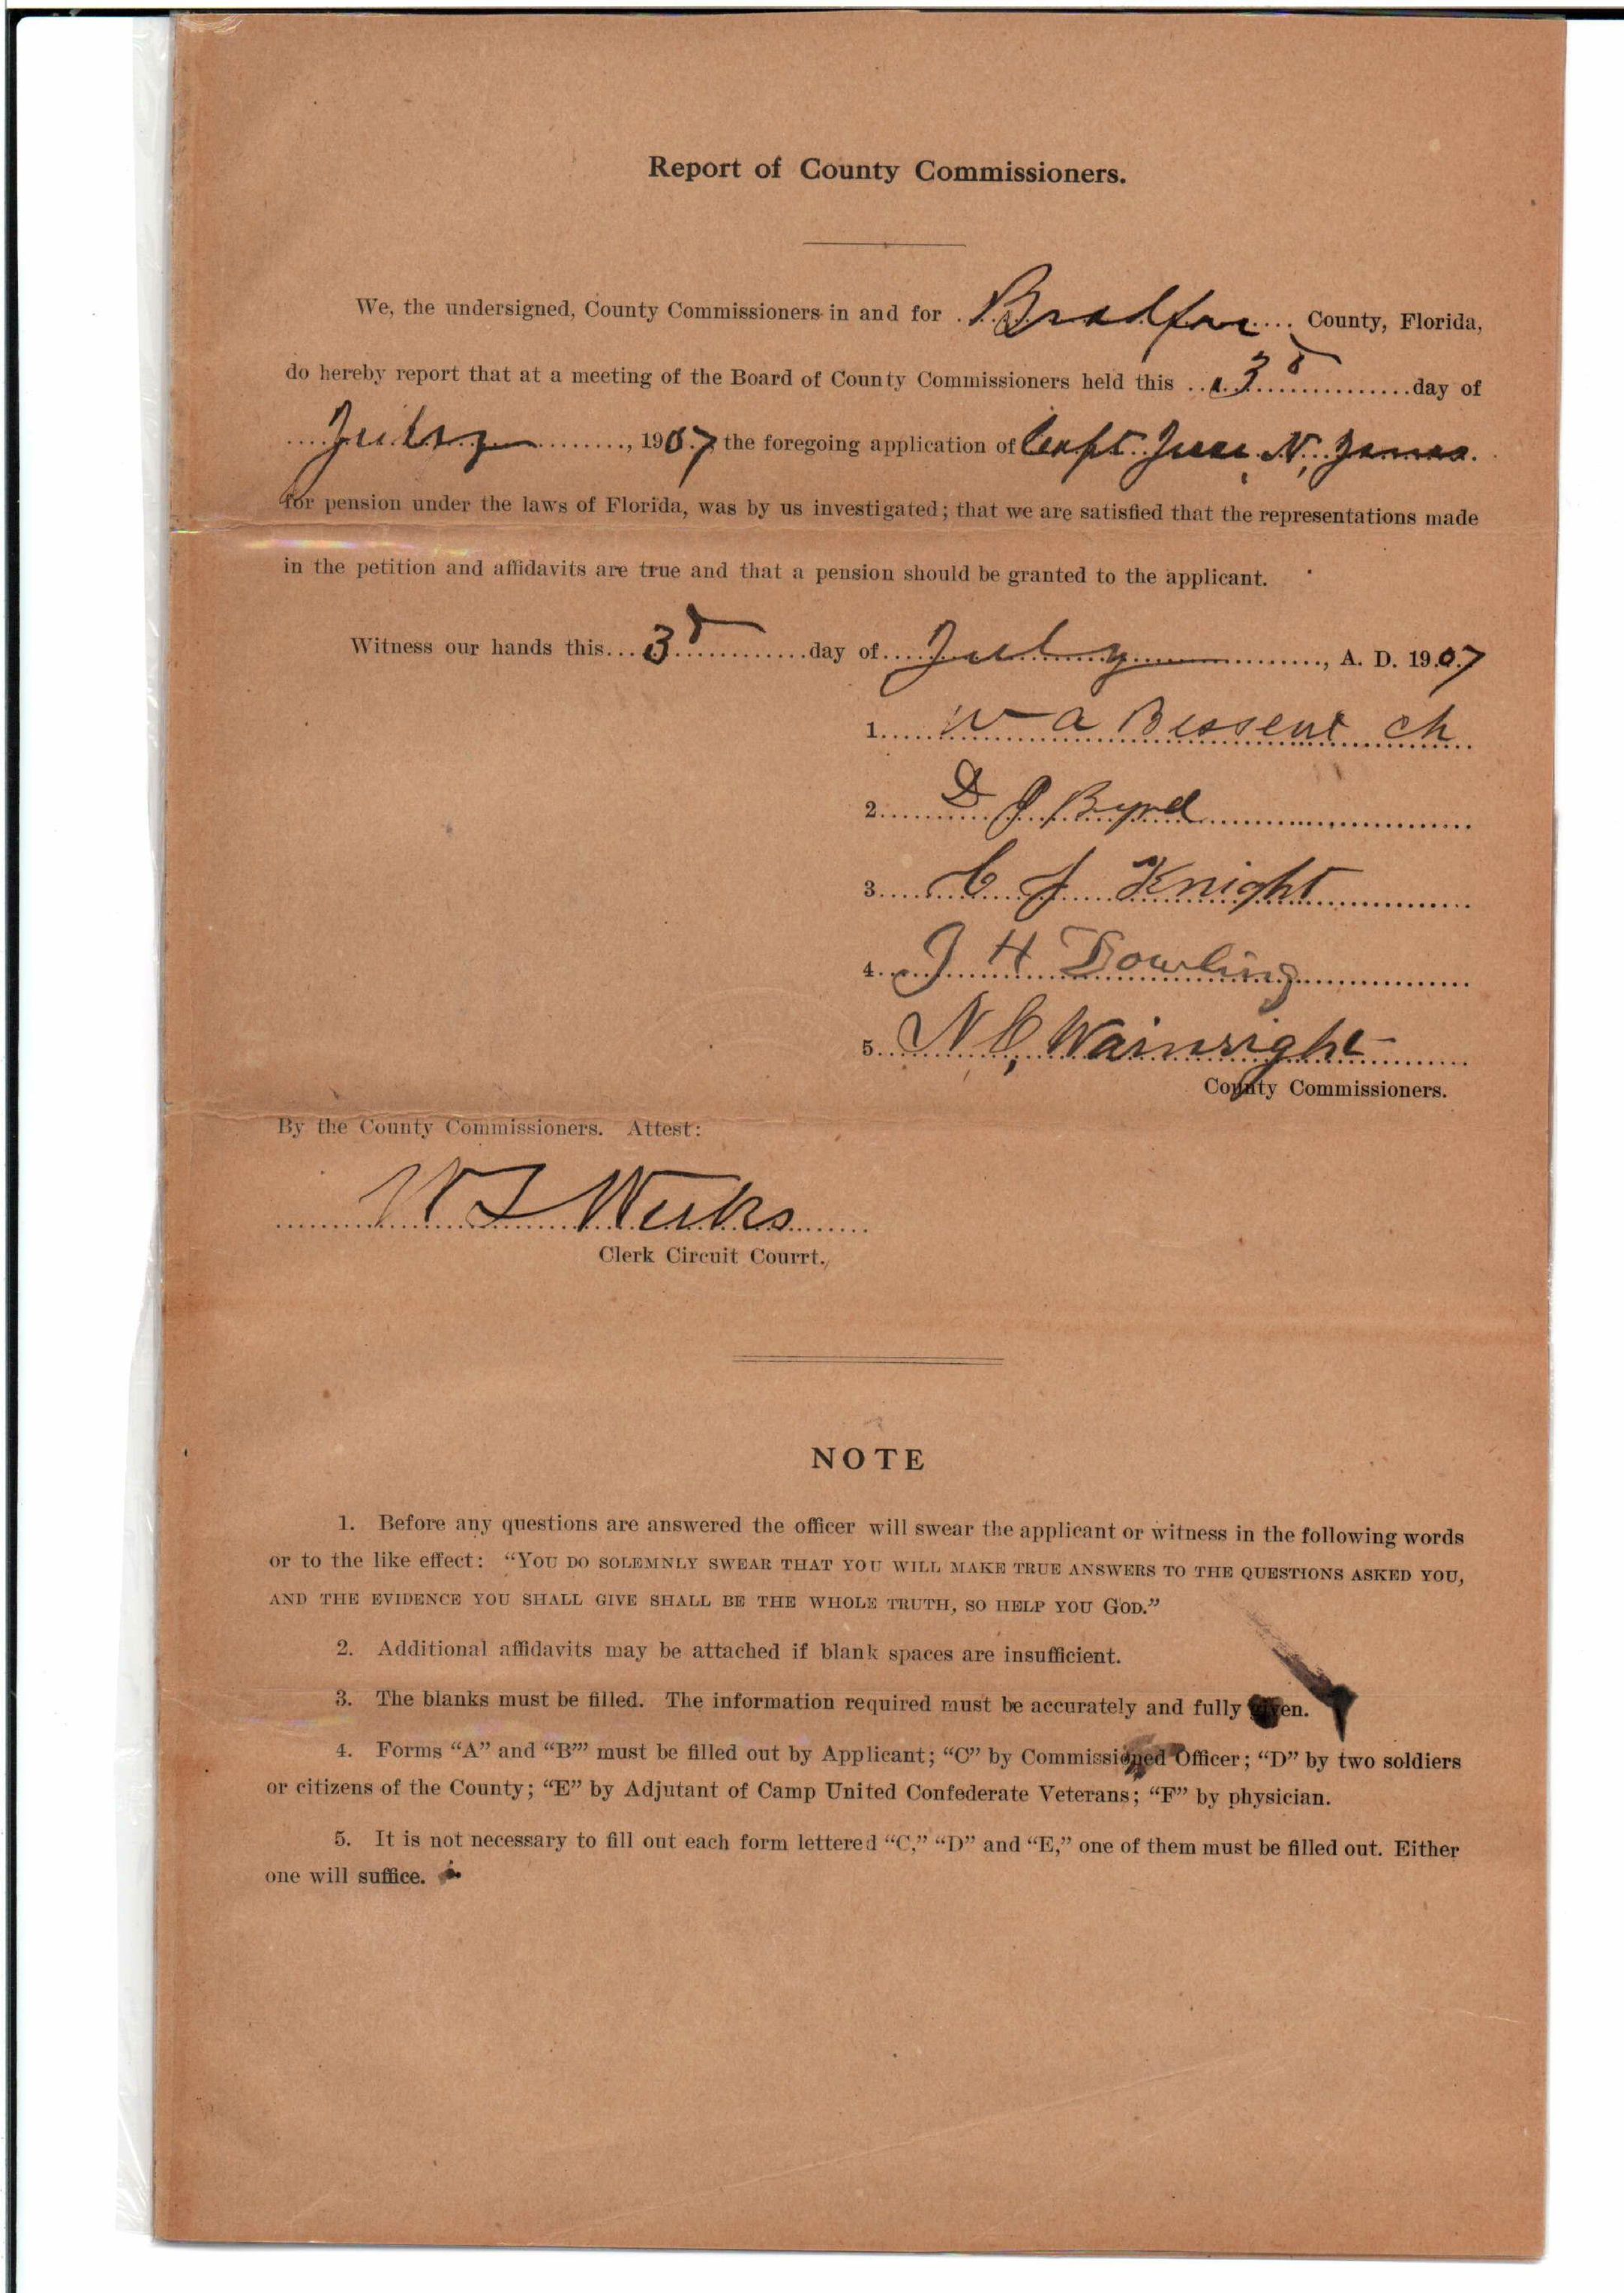 Report of County Commissioners.
We, the undersigned, County Commissioners in and for Bradford County, Florida,
do hereby report that at a meeting of the Board of County Commissioners held this 3d day of
July, 1907 the foregoing application of Capt. N, 
for pension under the laws of Florida, was by us investigated; that we are satisfied that the representations made
in the petition and affidavits are true and that a pension should be granted to the applicant.
Witness our hands this 3d day of July, A. D. 1907
1. W A Bessent ch
2. D J Byrd
3. C J Knight
4. J H Dowling
5. N C, Wainright
County Commissioners.
By the County Commissioners. Attest:
Weeks
Clerk Circuit Courrt.
NOTE
1. Before any questions are answered the officer will swear the applicant or witness in the following words
or to the like effect: “YOU DO SOLEMNLY SWEAR THAT YOU WILL MAKE TRUE ANSWERS TO THE QUESTIONS ASKED YOU,
AND THE EVIDENCE YOU SHALL GIVE SHALL BE THE WHOLE TRUTH, SO HELP YOU GOD.”
2. Additional affidavits may be attached if blank spaces are insufficient.
3. The blanks must be filled. The information required must be accurately and fully given.
4. Forms “A” and “B”’ must be filled out by Applicant; “C” by Commissioned Officer; “D” by two soldiers
or citizens of the County; “E” by Adjutant of Camp United Confederate Veterans; “F” by physician.
5. It is not necessary to fill out each form lettered “C,” “D” and “E,” one of them must be filled out. Either
one will suffice.